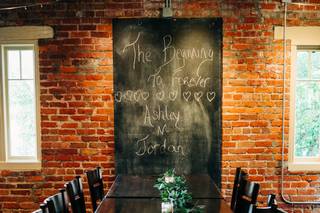 The Beginning
To Forever
♡♡♡♡♡♡♡♡
Ashley
N
Jordan